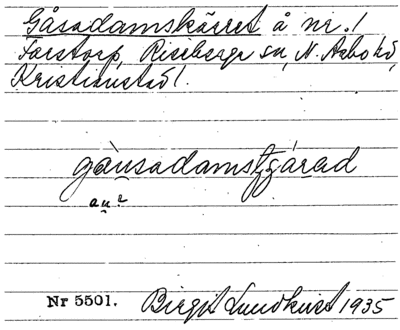 Gåsadamskärret å nr. 1
Forstorp, Riseberga sn, N. Åsbo hd,
Kristianstad l.
gàu̯sadamsʈʂǽrad
au̯?
Nr 5501. Birgit Lundkvist 1935